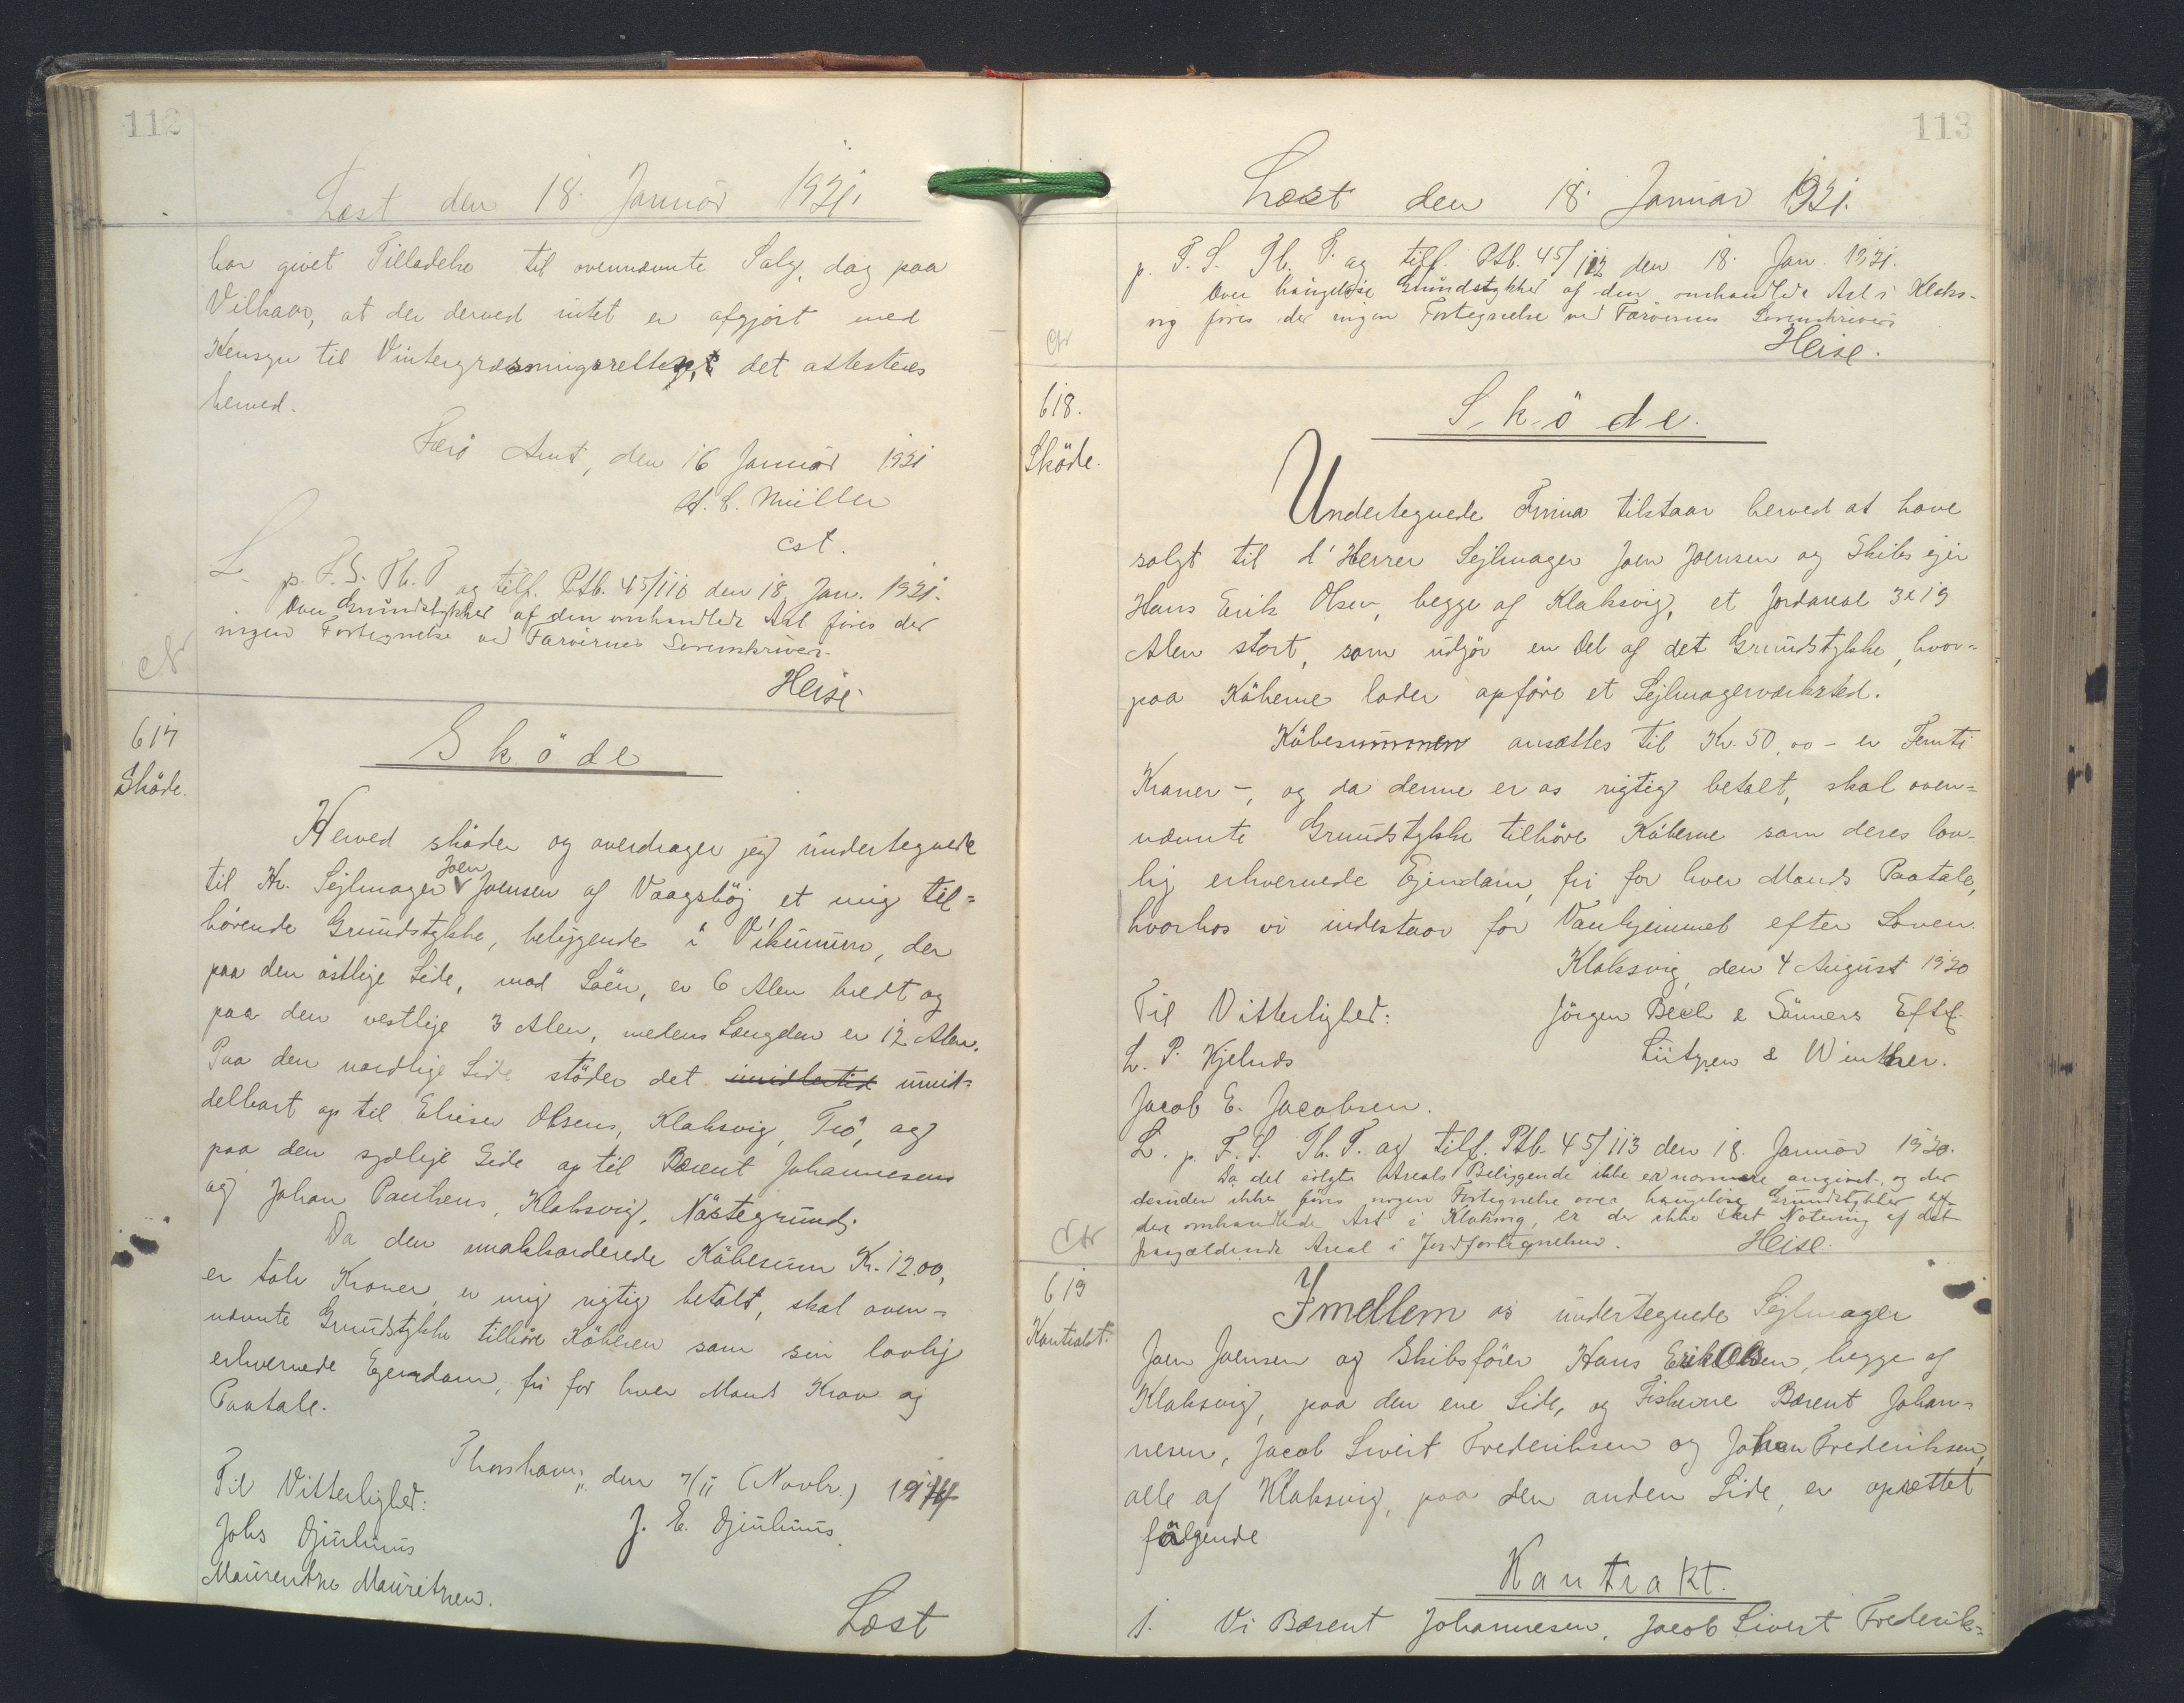 112
Læst den 18. Januar 1921.
har givet Tilladelse til ovennævnte Salg, dog paa
Vilkaar, at der derved intet er afgjort med
Hensyn til Vintergræsningsretten, det attesteres
herved.
Færö Amt, den 16 Januar 1921
H. C. Müller
cst.
L. p. F. S. Th. T og tilf. Ptb. 45/110 den 18 Jan. 1921.
Over Grundstykker af den omhandlede Art föres der
ingen Fortegnelse ved Færöernes Sorenskriveri.
Heise.
617
Sköde.
Sköde
Herved sköder og overdrager jeg undertegnede
til Hr. Sejlmager Joen Joensen af Vaagsböj et mig til=
hörende Grundstykke, beliggende i Vikunum, der
paa den östlige Side, mod Söen, er 6 Alen bredt og
paa den vestlige 3 Alen, medens Længden er 12 Alen.
Paa den nordlige Side stöder det imidlertid umid=
delbart op til Eliesar Olsens, Klaksvig, Trö, og
paa den sydlige Side op til Bærent Johannesens
og Johan Paulsens, Klaksvig, Nöstegrund.
Da den omakkorderede Köbesum Kr. 12.00,
er tolv Kroner, er mig rigtig betalt, skal oven=
nævnte Grundstykke tilhöre Köberen som sin lovlig
erhvervede Ejendom, fri for hver Mands Krav og
Paatale.
Thorshavn, den 7/11 (Novbr.) 1914
Til Vitterlighed:
J. E. Djurhuus.
Johs Djurhuus
Maurentze Mauritzen.
Læst
113
Læst den 18. Januar 1921.
p. F. S. Th. T. og tilf. Ptb. 45/112 den 18. Jan. 1921.
Over haugelöse Grundstykker af den omhandlede Art i Klaks-
vig föres der ingen Fortegnelse ved Færöernes Sorenskriveri
Heise.
618.
Sköde.
Sköde.
Undertegnede Firma tilstaar herved at have
solgt til d'Herrer Sejlmager Joen Joensen og Skibsejer
Hans Erik Olsen, begge af Klaksvig, et Jordareal 3x19
Alen stort, som udgör en Del af det Grundstykke, hvor=
paa Köberne lader opföre et Sejlmagerværksted.
Köbesummen ansættes til Kr. 50,00 - er Femti
Kroner -, og da denne er os rigtig betalt, skal oven=
nævnte Grundstykke tilhöre Köberne som deres lov-
lig erhvervede Ejendom, fri for hver Mands Paatale,
hvorhos vi indestaar for Vanhjemmel efter Loven.
Klaksvig, den 4 August 1920
Til Vitterlighed:
Jörgen Bech & Sönners Eftf.
L. P. Kjelnæs
Lützen & Winther.
Jacob E. Jacobsen.
L. p. F. S. Th. T. og tilf. Ptb. 45/113 den 18. Januar 1920.
Da det solgte Areals Beliggende ikke er nærmere angivet, og der
desuden ikke föres nogen Fortegnelse over haugelöse Grundstykker af
den omhandlede Art i Klaksvig, er der ikke sket Notering af det
paagældende Areal i Jordfortegnelsen.
Heise.
619
Kontrakt.
Imellem os undertegnede Sejlmager
Joen Joensen og Skibsförer Hans Erik Olsen, begge af
Klaksvig, paa den ene Side, og Fiskerne Bærent Johan=
nesen, Jacob Sivert Frederiksen og Johan Frederiksen,
alle af Klaksvig, paa den anden Side, er oprettet
fölgende
Kontrakt.
1. Vi Bærent Johannesen, Jacob Sivert Frederik=